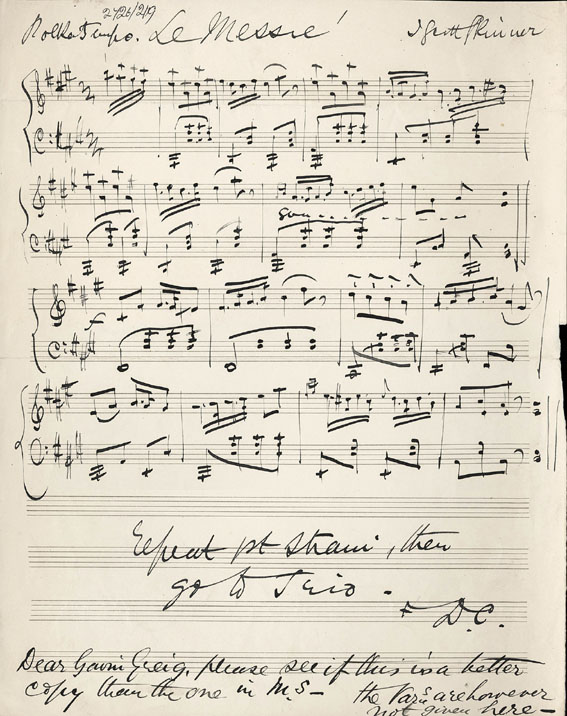 2726/219
Polka Tempo. Le Messie J Scott Skinner
8va
f
Repeat pt Strain, then
go to Trio.
+ D.C.
Dear Gavin Greig, please see if this is a better
copy than the one in M.S—
the Vars. are however
not given here—